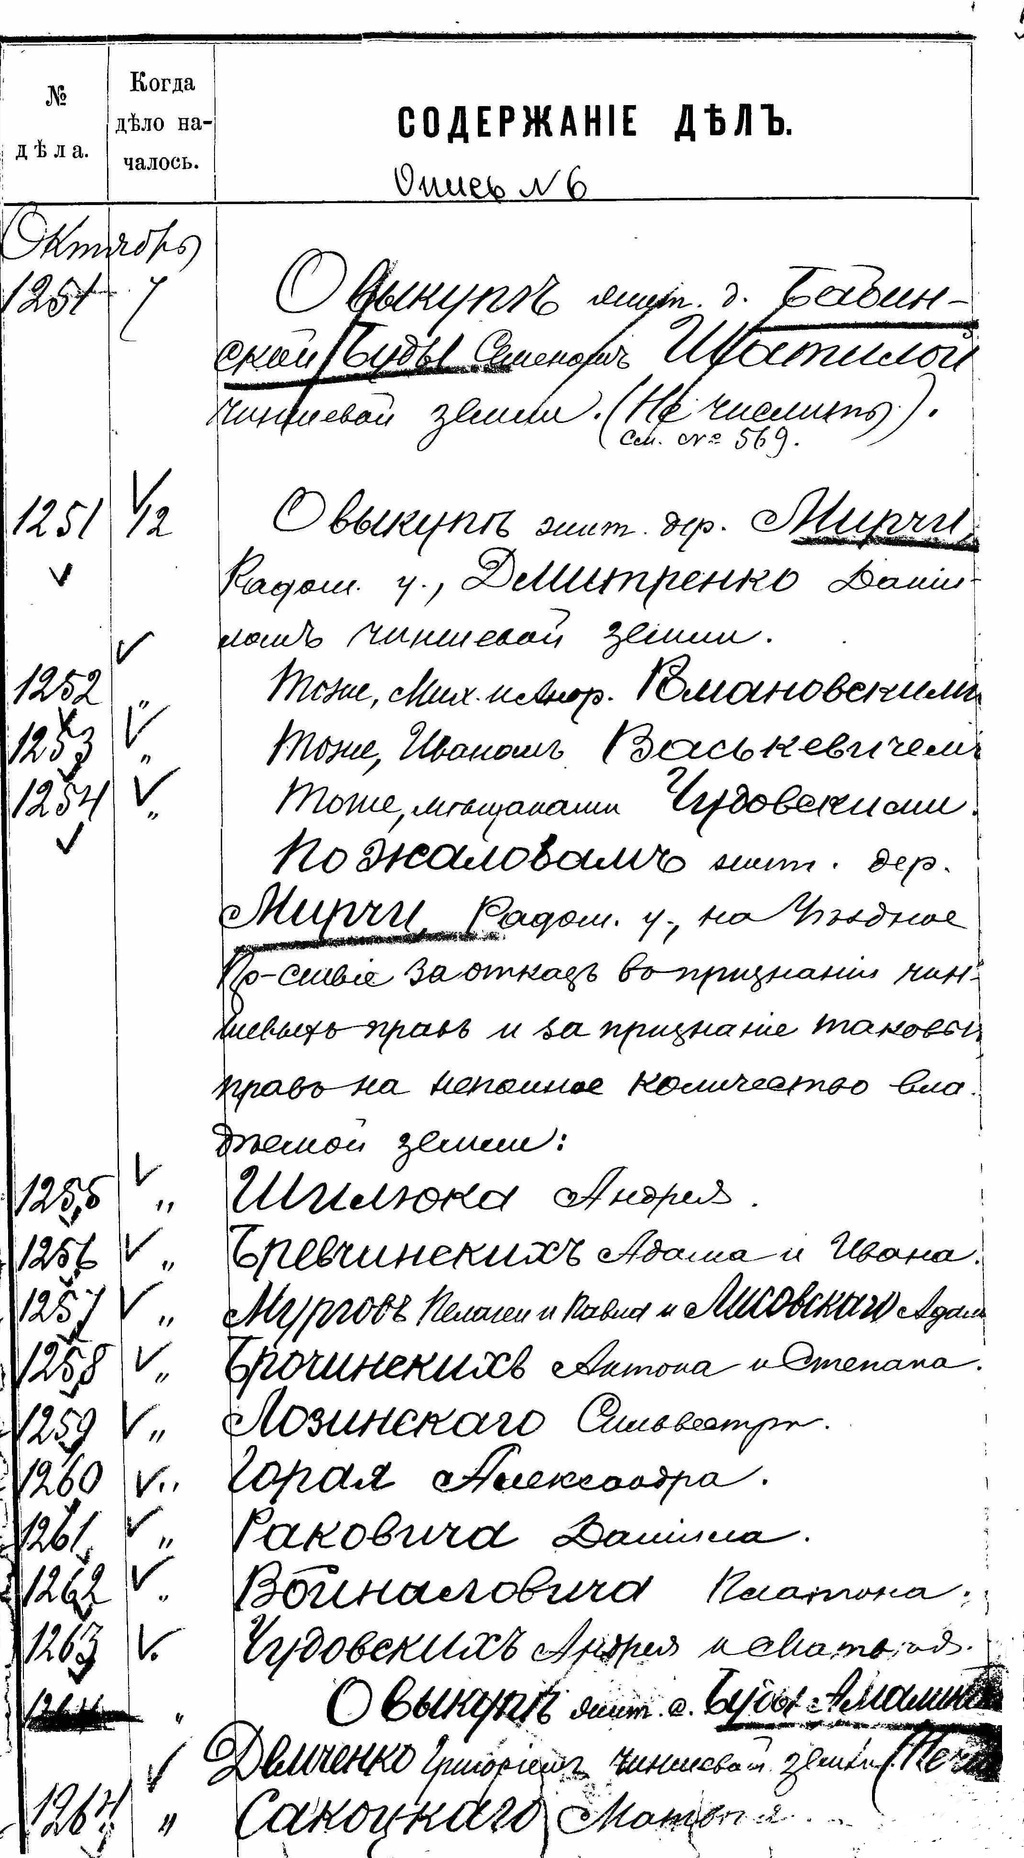 № дѣла.
Когда дѣло началось.
СОДЕРЖАНІЕ ДѢЛЪ.
Опись № 6
Октябрь
1251 7 О выкупѣ жит. д. Бабин-
ской Буды Семеномъ Шатилой
чиншевой земли. (Не числить).
См. № 569.
1251 12 О выкупѣ жит. дер. Мирчи,
Радом. у., Дмитренко Дани-
ломъ чиншевой земли.
1252 " Тоже, Мих. и Андр.
1253 " Тоже, Иваномъ Васькевичемъ
1254 " Тоже, мѣщанами Чудовскими.
По жалобамъ жит. дер.
Мирчи, Радом. у., на Уѣздное
Пр-ствіе за отказъ въ признаніи чин-
шевыхъ правъ и за признаніе таковыхъ
правъ на неполное количество вла-
дѣемой земли:
1255 " Шилюка Андрея.
1256 " Бревчинскихъ Адама и Ивана.
1257 " Мурговъ Пелагеи и Павла и Лисовскаго Адама
1258 " Брочинскихъ Антона и Степана.
1259 " Лозинскаго Сильвестра.
1260 " Горая Александра.
1261 " Раковича Данила.
1262 " Войналовича Платона.
1263 " Чудовскихъ Андрея и Матвѣя.
1264 " О выкупѣ жит. с. Буды
Демченко Григоріемъ чиншевой земли
1264 " Сакоцкаго Матвѣя